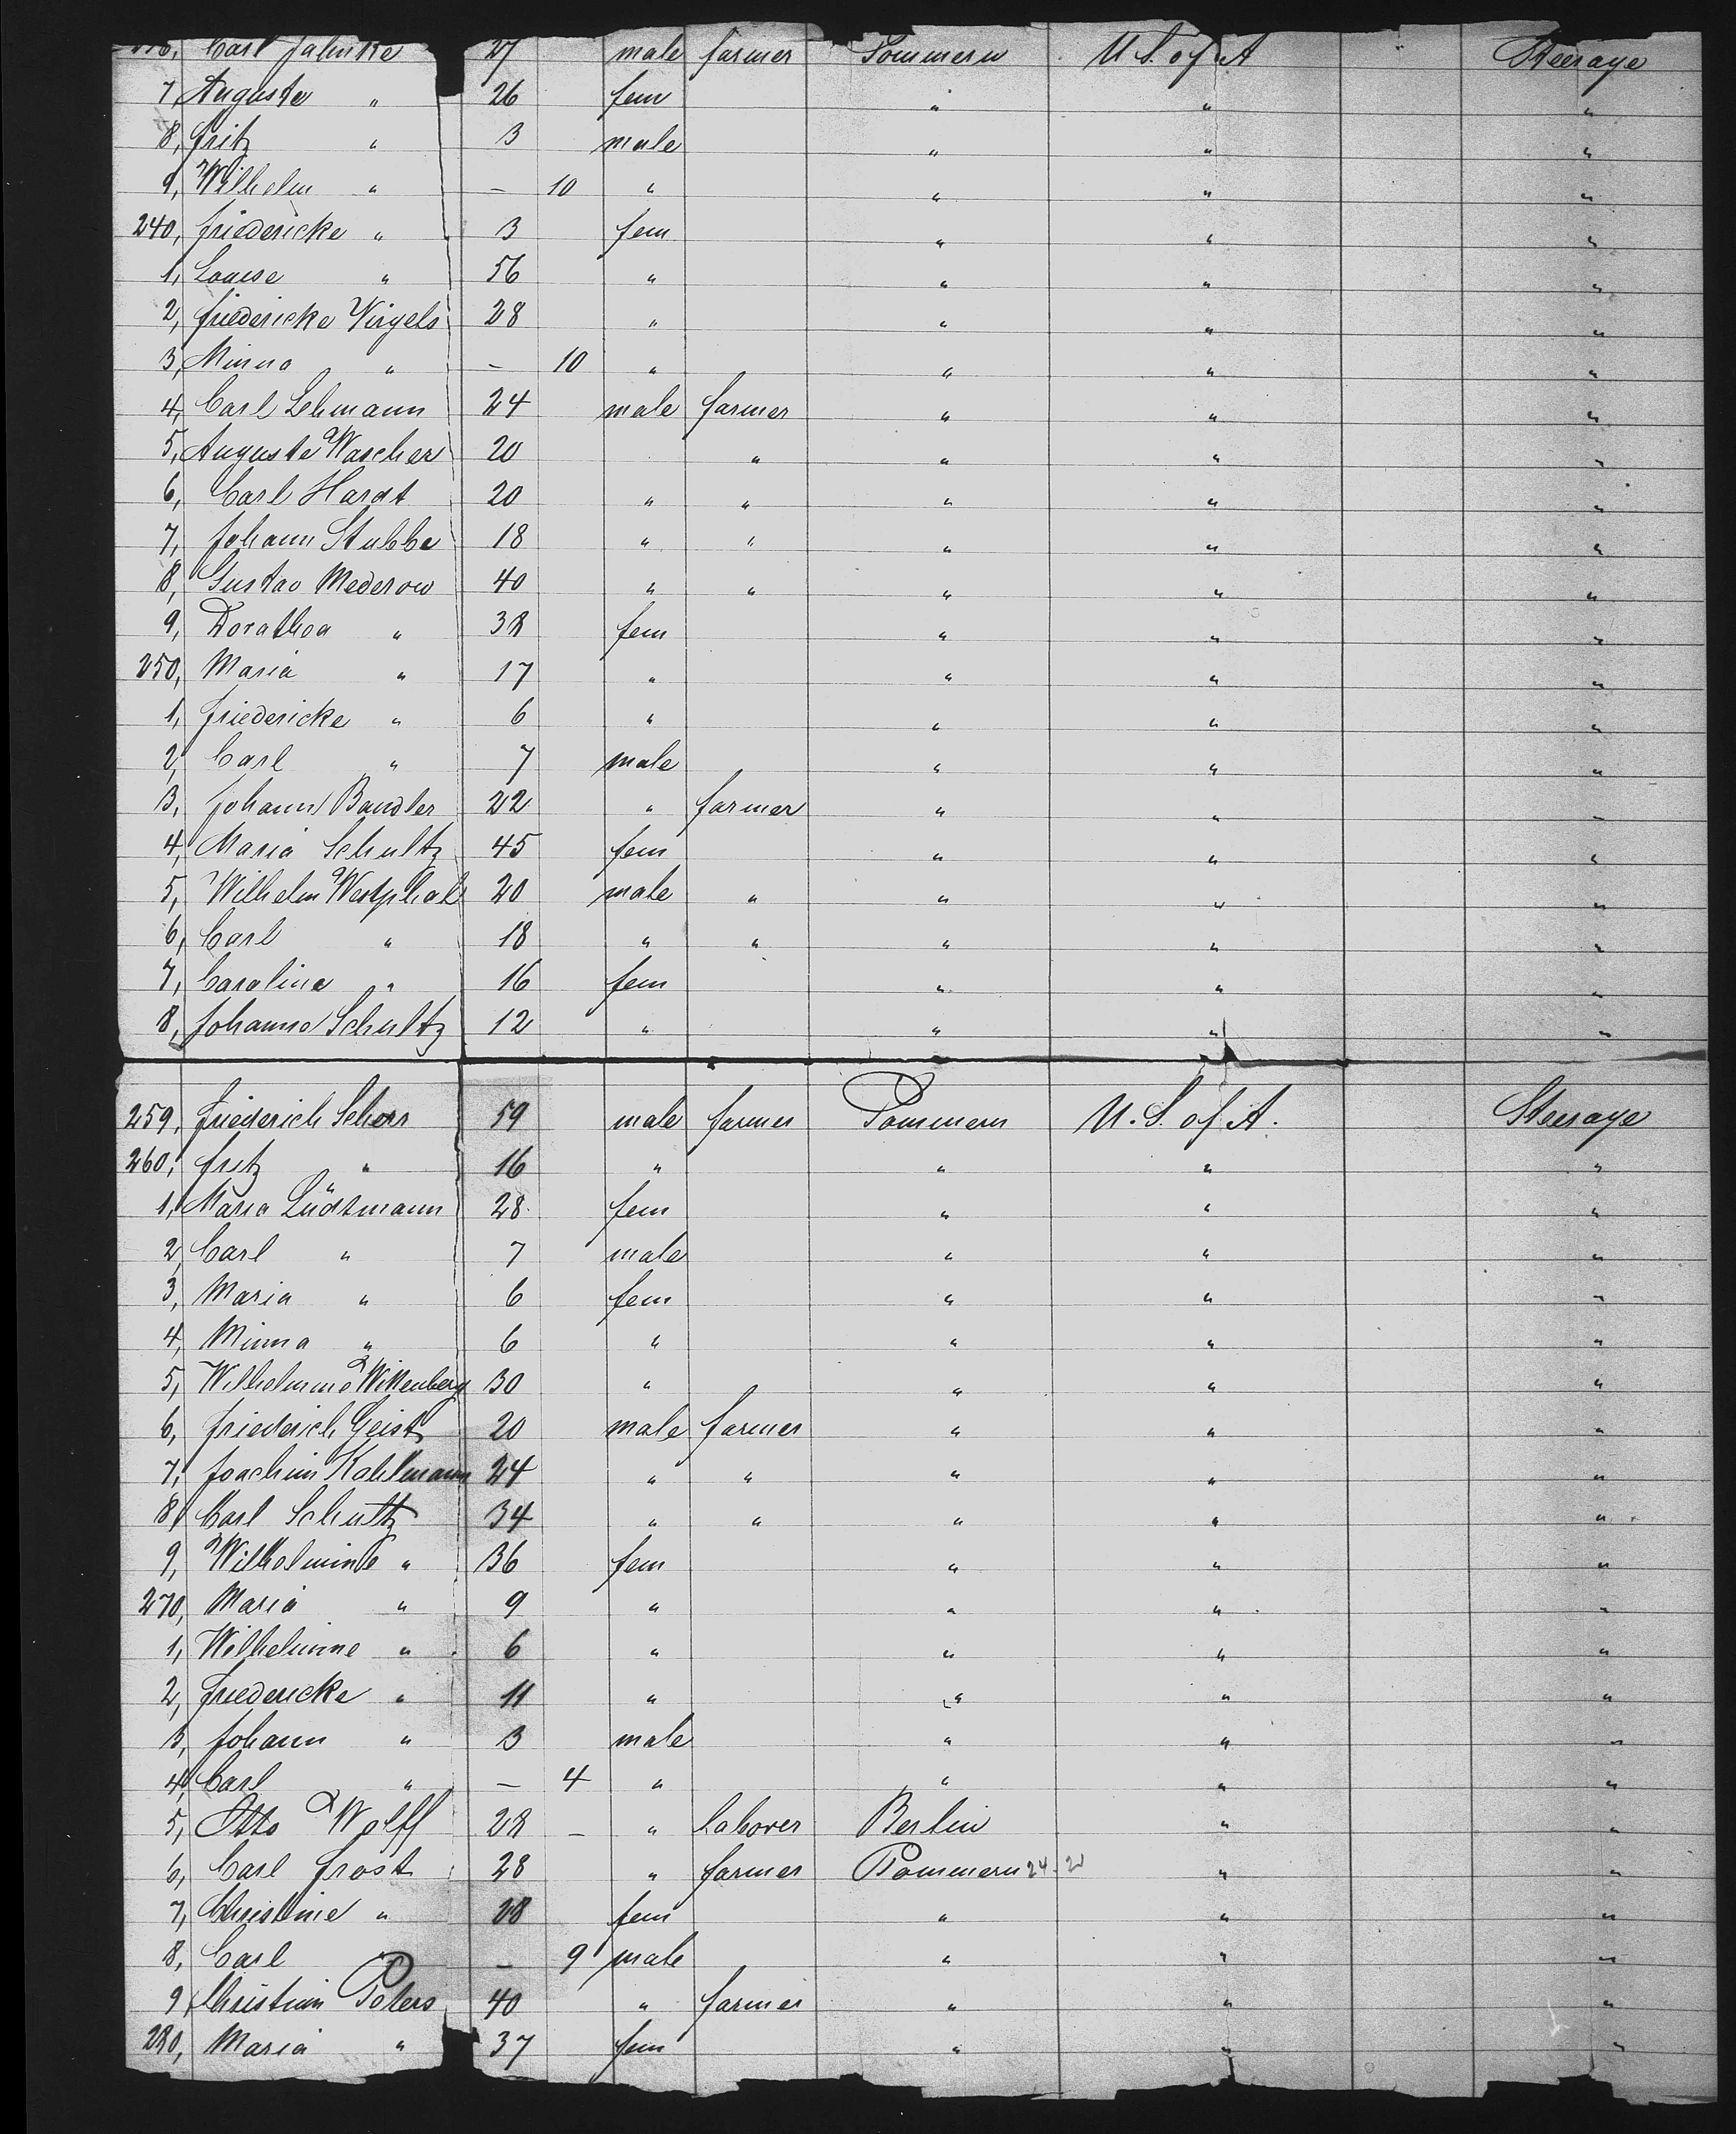 236, Carl Jahnke 27 male farmer Pommern U S. of A Steerage
7, Auguste " 26 fem " " "
8, Fritz " 3 male " " "
9, Wilhelm " — 10 " " " "
240, Friedericke " 3 fem " " "
1, Louise " 56 " " " "
2, Friedericke Virgels 28 " " " "
3, Minna " — 10 " " " "
4, Carl Lehmann 24 male farmer " " "
5, Auguste Wascher 20 " " " "
6, Carl Hardt 20 " " " " "
7, Johann Stubbe 18 " " " " "
8, Gustav Mederow 40 " " " " "
9, Dorathea " 38 fem " " "
250, Maria " 17 " " " "
1, Friedericke " 6 " " " "
2, Carl " 7 male " " "
3, Johann Bandler 22 " farmer " " "
4, Maria Schultz 45 fem " " "
5, Wilhelm Westphal 20 male " " " "
6, Carl " 18 " " " " "
7, Caroline " 16 fem " " "
8, Johanne Schultz 12 " " " "
259, Friederich Schors 59 male farmer Pommern U. S. of A. Steerage
260, Fritz " 16 " " " "
1, Maria Lüdtmann 28 fem " " "
2, Carl " 7 male " " "
3, Maria " 6 fem " " "
4, Minna " 6 " " " "
5, Wilhelmine Wittenberg 30 " " " "
6, Friederich Geist 20 male farmer " " "
7, Joachim Kahlmann 24 " " " " "
8, Carl Schultz 34 " " " " "
9, Wilhelmine " 36 fem " " "
270, Maria " 9 " " " "
1, Wilhelmine " 6 " " " "
2, Friedericke " 11 " " " "
3, Johann " 3 male " " "
4, Carl " — 4 " " " "
5, Otto Wolff 28 — " laborer Berlin " "
6, Carl Frost 28 " farmer Pommern " "
7, Christine " 28 fem " " "
8, Carl " — 9 male " " "
9, Christian Peters 40 " farmer " " "
280, Maria " 37 fem " " "